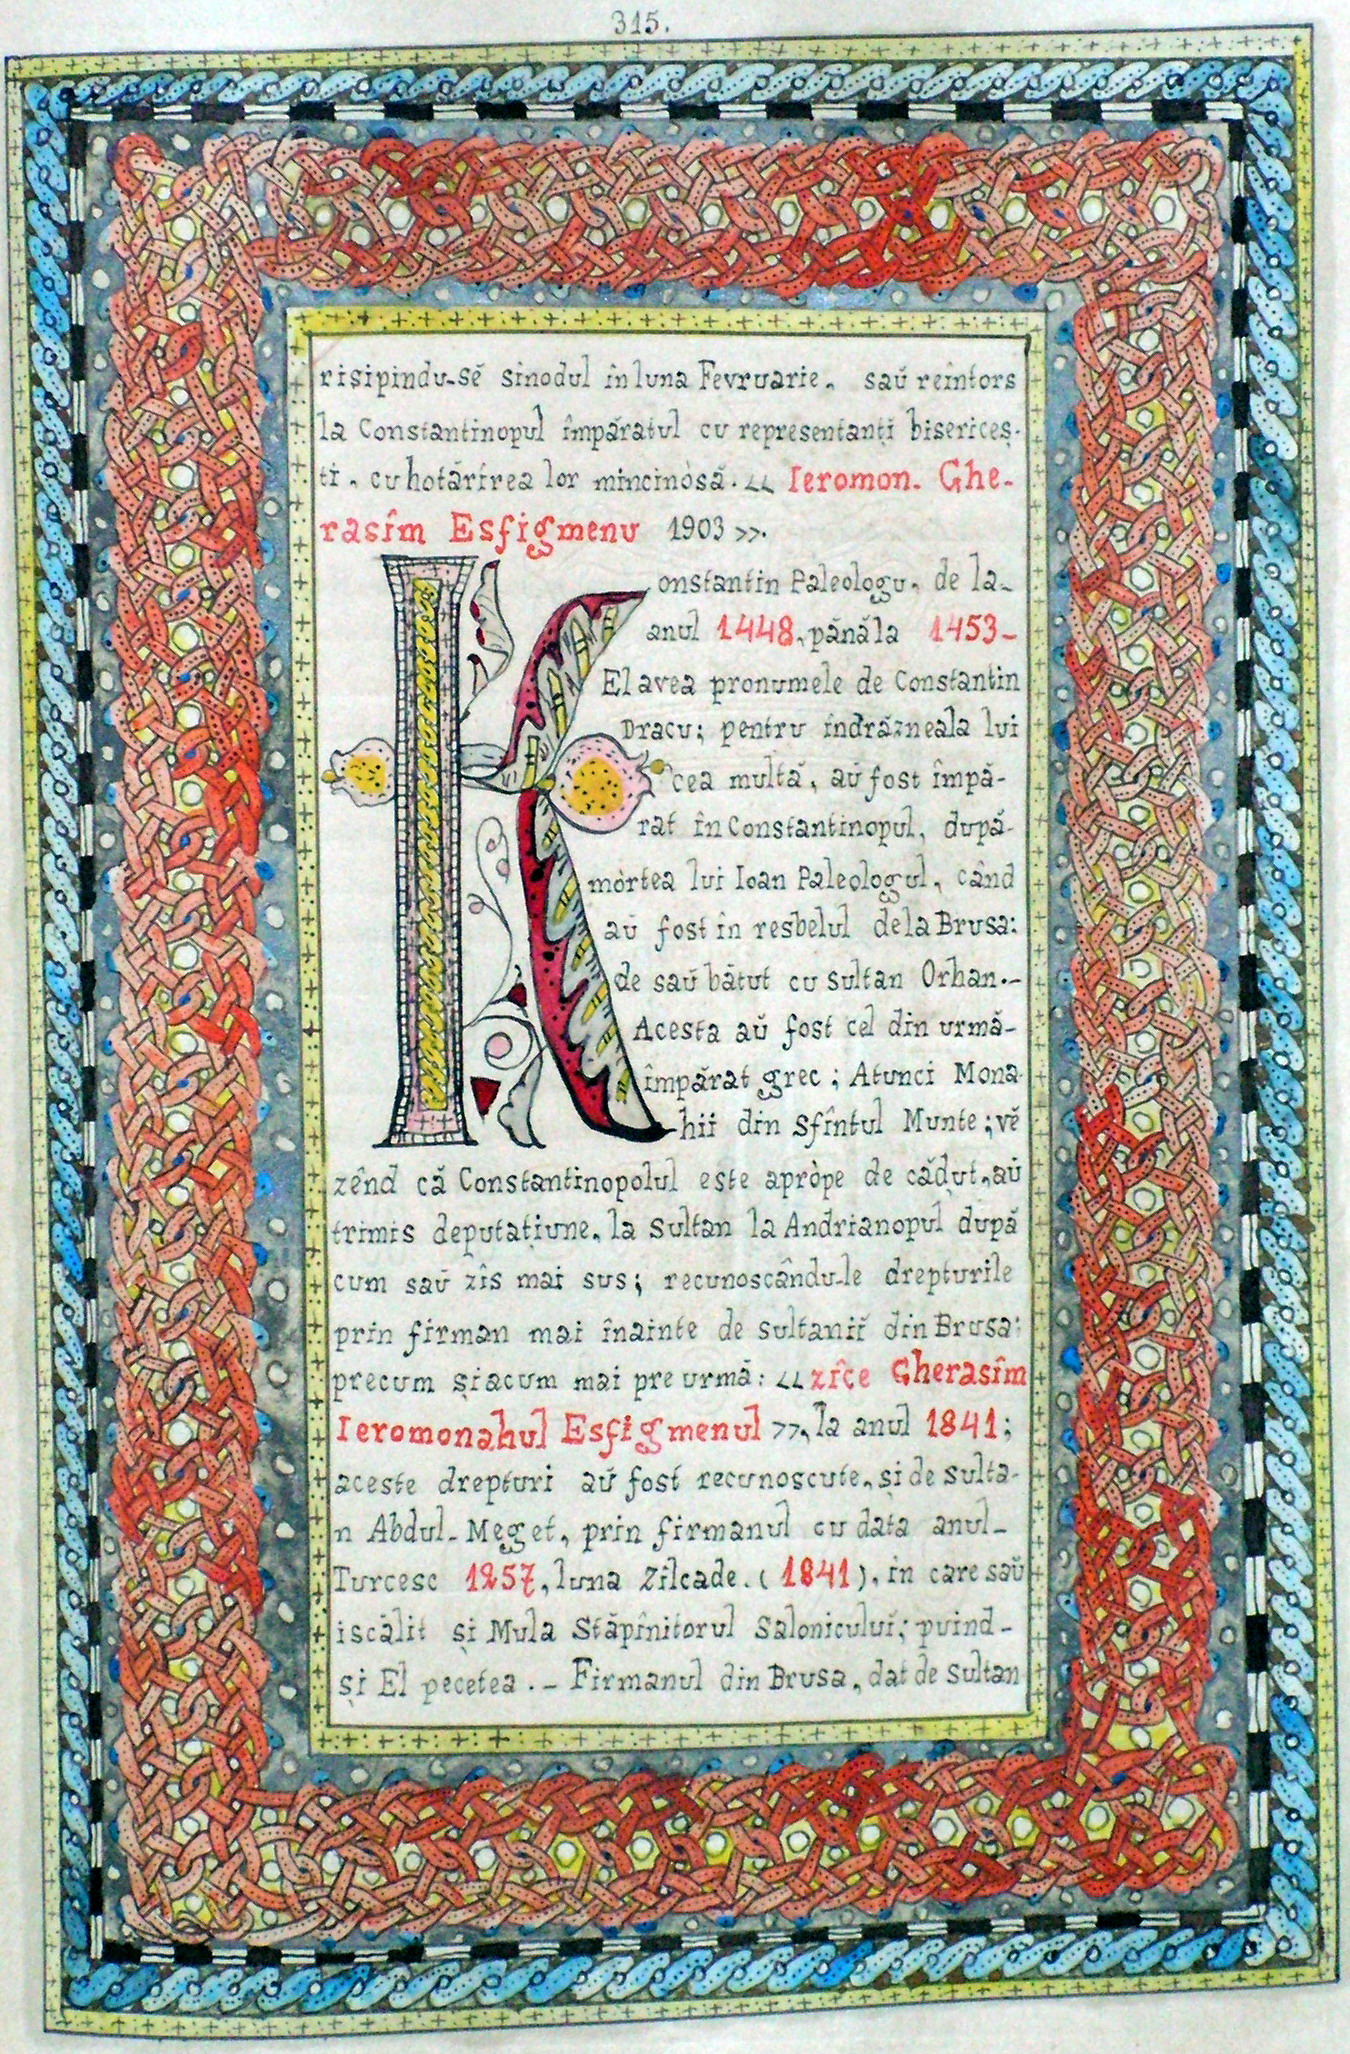 315.
risipindu-sĕ sinodul în luna Fevruarie. saŭ reîntors
la Constantinopul împăratul cu representanți bisericeș-
ti. cu hotărîrea lor mincinòsă. << Ieromon. Ghe-
rasîm Esfigmenu 1903 >>.
Konstantin Paleologu. de la-
anul 1448, pănă la 1453-
El avea pronumele de Constantin
Dracu; pentru îndrăzneala lui
cea multă, aŭ fost împă-
rat în Constantinopul, după-
mòrtea lui Ioan Paleologul, când
aŭ fost in resbelul dela Brusa:
de saŭ bătut cu sultan Orhan.-
Acesta aŭ fost cel din urmă-
împărat grec; Atunci Mona-
hii din Sfîntul Munte; vĕ
zênd că Constantinopolul este apròpe de cădut, aŭ
trimis deputațiune, la Sultan la Andrianopul după
cum saŭ zîs mai sus; recunoscându-le drepturile
prin firman mai înainte de sultanii din Brusa:
precum și acum mai pre urmă: << zîce Gherasîm
Ieromonahul Esfigmenul >>, la anul 1841;
aceste drepturi aŭ fost recunoscute, și de sulta-
n Abdul-Meget, prin firmanul cu data anul-
Turcesc 1257, luna Zilcade. (1841), in care saŭ
iscălit și Mula Stăpînitorul Salonicului; puind-
și El pecetea.- Firmanul din Brusa, dat de Sultan